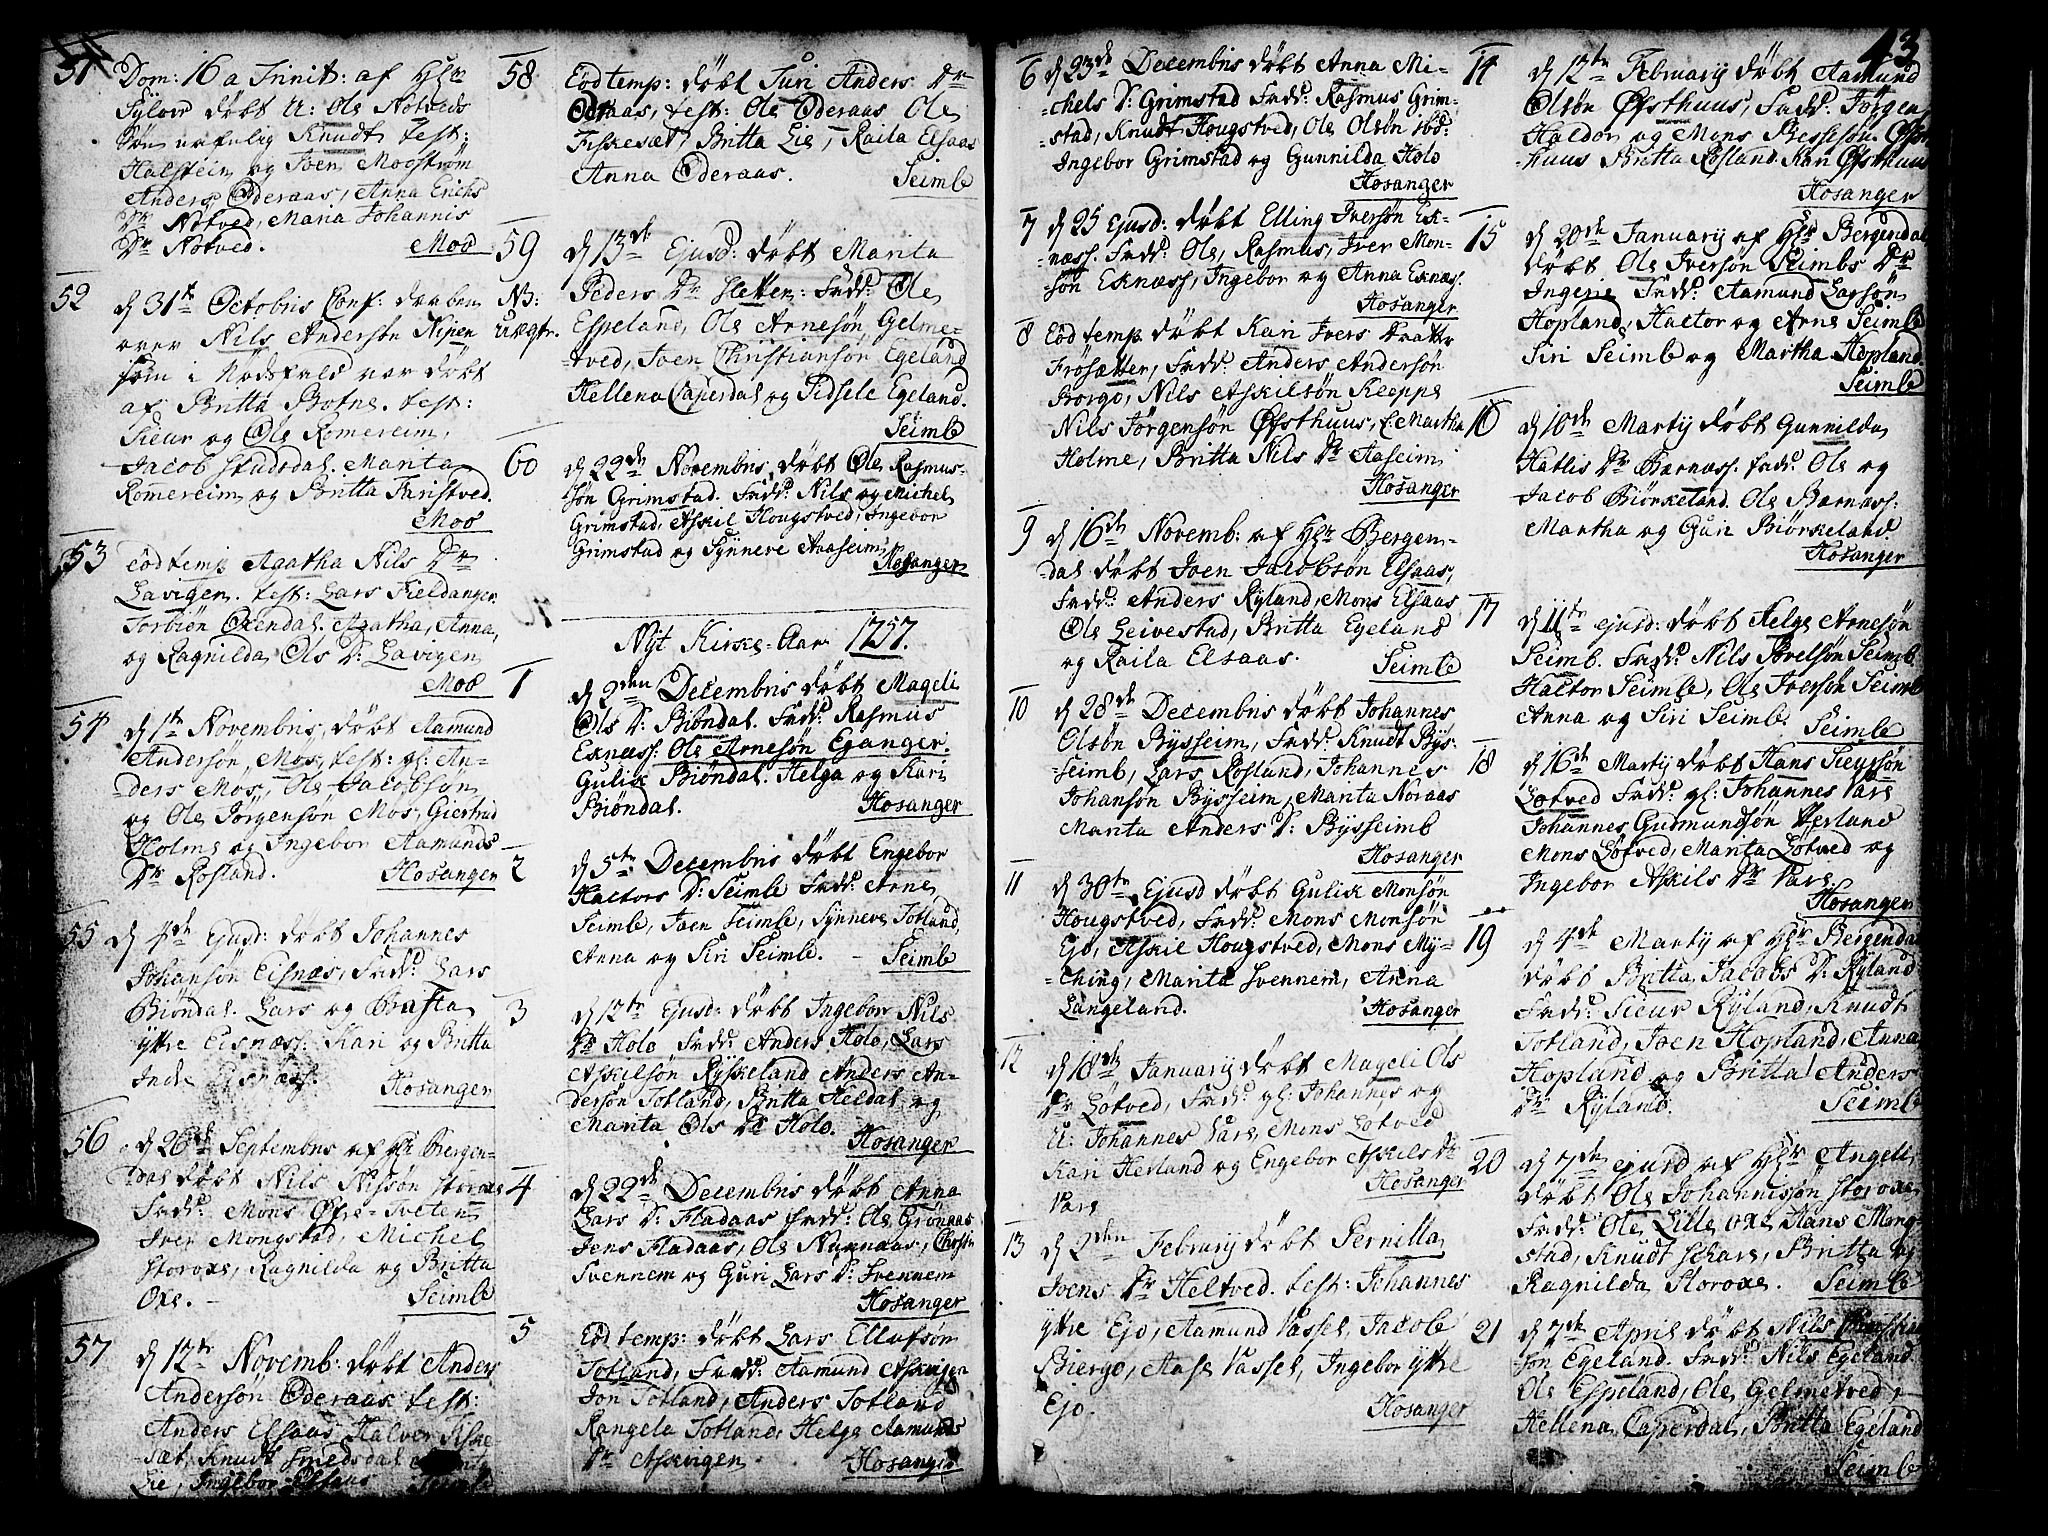 43
51 Dom: 16 a Trinit: af Hr
døbt U: Ole Nøtveds
Søn navnlig Knudt test:
Halstein og Joen Mogstrøm
Anders Oderaas, Anna Erichs
Dr Nøtved, Maria Johannis
Dr Nøtved. Moe
52 d 31t Octobris Conf: daaben
over Nils Andersøn Nipen
som i Nødsfald var døbt
af Britta Botne. test:
Sieur og Ole Romereim,
Jacob Studsdal. Marita
Romereim og Britta Faristved.
Moe
53 Eod temp Agatha Nils Dr
Lavigen. test: Lars Fieldanger
Torbiön Oxendal. Agatha, Anna,
og Ragnilda Ols D: Lavigen
Moe
54 d 1te Novembris døbt Aamund
Andersøn Mos, test: gl: An-
ders Mos, Ole Jacobsøn
og Ole Jørgensøn Mos, Giertrud
Holme og Ingebor Aamunds
Dr Rosland. Hosanger
55 d 4de Ejusd: døbt Johannes
Johansøn Eisnæs, Fadd: Lars
Biöndal. Lars og Brusta
yttre Eisnæss: Kari og Britta
Indre Eisnæss. Hosanger
56 d 26de Septembris af Hr Bergen-
dal døbt Nils Nilssøn Storoxe
Fadd: Mons Øvre-Tveten
Iver Mongstad, Michel
Storoxe, Ragnilda og Britta
Oxe. Seimb
57 d 12te Novemb: døbt Anders
Andersøn Oderaas test:
Anders Elsaas Halvor Fiske-
sæt, Knudt Smedsdal
Lie, Ingebor Elsaas Seimb
58 Eod temp: døbt Turi Anders Dr
Oderaas, test: Ole Oderaas Ole
Fiskesæt, Britta Lie, Raila Elsaas
Anna Oderaas. Seimb
59 d 13de Ejusd: døbt Marita
NB: Peders Dr Sletten: Fadd: Ole
uægte. Espeland, Ole Arnesøn Gelme-
tved, Joen Christiansøn Egeland
Hellena Caperdal og Sidsele Egeland.
Seimb
60 d 22de Novembris døbt Ole Rasmus-
søn Grimstad. Fadd: Nils og Michel
Grimstad, Askil Hougstved, Ingebor
Grimstad og Synneve Aaseim
Hosanger
Nyt Kirke-Aar 1757.
1 d 2den Decembris døbt Mageli
Ols D: Biöndal. Fadd: Rasmus
Exnæss: Ole Arnesøn Eganger.
Gulik Biöndal. Helga og Kari
Biöndal. Hosanger
2 d 5te Decembris døbt Engebor
Haltors D: Seimb Fadd: Arne
Seimb, Joen Seimb, Synneve Totland,
Anna og Siri Seimb. - Seimb
3 d 12te Ejusd: døbt Ingebor Nils
Dr Holo Fadd: Anders Holo, Lars
Askilsøn Ryskeland Anders An-
dersøn Totland, Britta Heldal og
Marita Ols Dr Holo. Hosanger
4 d 22de Decembris døbt Anna
Lars D: Fladaas Fadd: Ole Grönaas
Jens Fladaas, Ole Nypnaas, Christi
Svennem og Guri Lars D: Svennem
Hosanger
5 Eod temp: døbt Lars Ellufsøn
Totland, Fadd: Aamund Askvigen
Jon Totland, Anders Totland
Rangela Totland Helge Aamunds
Dr Askvigen Hosanger
6 d 23de Decembris døbt Anna Mi-
chels D: Grimstad Fadd: Rasmus Grim-
stad, Knudt Hougstved, Ole Olsøn ibd:
Ingebor Grimstad og Gunnilda Holo
Hosanger
7 d 25 Ejusd: døbt Elling Iversøn Ek-
næss. Fadd: Ole, Rasmus, Iver Mon-
søn Eknæss, Ingebor og Anna Exnæss.
Hosanger
8 Eod temp. døbt Kari Ivers Datter
Frösætter, Fadd: Anders Andersøn
Borgo, Nils Askilsøn Keeppe
Nils Jörgensøn Øfsthuus, L. Martha
Holme, Britta Nils Dr Aaseim
Hosanger
9 d 16de Novemb: af Hr Bergen-
dal døbt Joen Jacobsøn Elsaas,
Fadd: Anders Ryland, Mons Elsaas
Ole Leivestad, Britta Egeland
og Raila Elsaas. Seimb
10 d 28de Decembris døbt Johannes
Olsøn Bysseim, Fadd: Knudt Bys-
seimb, Lars Rosland, Johannes
Johansøn Bysseim, Marita Noraas
Marita Anders D: Bysseimb
Hosanger
11 d 30te Ejusd døbt Gulik Monsøn
Hougstved, Fadd: Mons Monsøn
Ejo, Askil Hougstved, Mons My-
king, Marita Svennem, Anna
Langeland. Hosanger
12 d 18de Januarij døbt Mageli Ols
Dr Løtved, Fadd: gl: Johannes og
U: Johannes Vare, Mons Løtved
Kari Herland og Engebor Askils Dr
Vare Hosanger
13 d 2den Februrij døbt Pernilla
Joens Dr Heltved. test: Johannes
yttre Ejo, Aamund Vassel, Jacob
Biergo, Aase Vassel, Ingebor yttre
Ejo Hosanger
14 d 12te Februarij døbt Aamund
Olsøn Øfsthuus, Fadd: Jörgen
Haldor og Mons Bessesøn Øfst-
huus Britta Rosland. Kari Øfsthuus
Hosanger
15 d 20de Januarij af Hr Bergendal
døbt Ole Iversøn Seimbs Dr
Ingerie Fadd: Aamund Larsøn
Hopland, Haltor og Arne Seimb
Siri Seimb og Martha Hopland.
Seimb
16 d 10de Martij døbt Gunnilda
Hatlis Dr Bærnæss: Fadd: Ole og
Jacob Biörkeland. Ole Bærnæss:
Martha og Guri Biörkeland.
Hosanger
17 d 11te ejusd: døbt Helge Arnesøn
Seimb. Fadd: Nils Povelsøn Seimb.
Haltor Seimb, Ole Iversøn Seimb
Anna og Siri Seimb.
Seimb
18 d 16de Martij døbt Hans Sieursøn
Løtved Fadd: gl: Johannes Vare
Johannes Gudmundsøn Herland
Mons Løtved, Marita Løtved og
Ingebor Askils Dr Vare
Hosanger
19 d 4de Martij af Hr Bergendal
døbt Britta Jacobs D: Ryland
Fadd: Sieur Ryland, Knudt
Totland, Joen Hopland, Anna
Hopland og Britta Anders
Dr Ryland. Seimb
20 d 7de ejusd af Hr Angell,
døbt Ole Johannissøn Storoxe
Fadd: Ole Lille oxe, Hans Mong-
stad, Knudt Schare, Britta og
Ragnilda Storoxe. Seimb
21 d 7de April døbt Nils
søn Egeland. Fadd: Nils Egeland
Ole Espeland, Ole Gelmetved,
Hellena Caperdal, Britta Egeland
Seimb